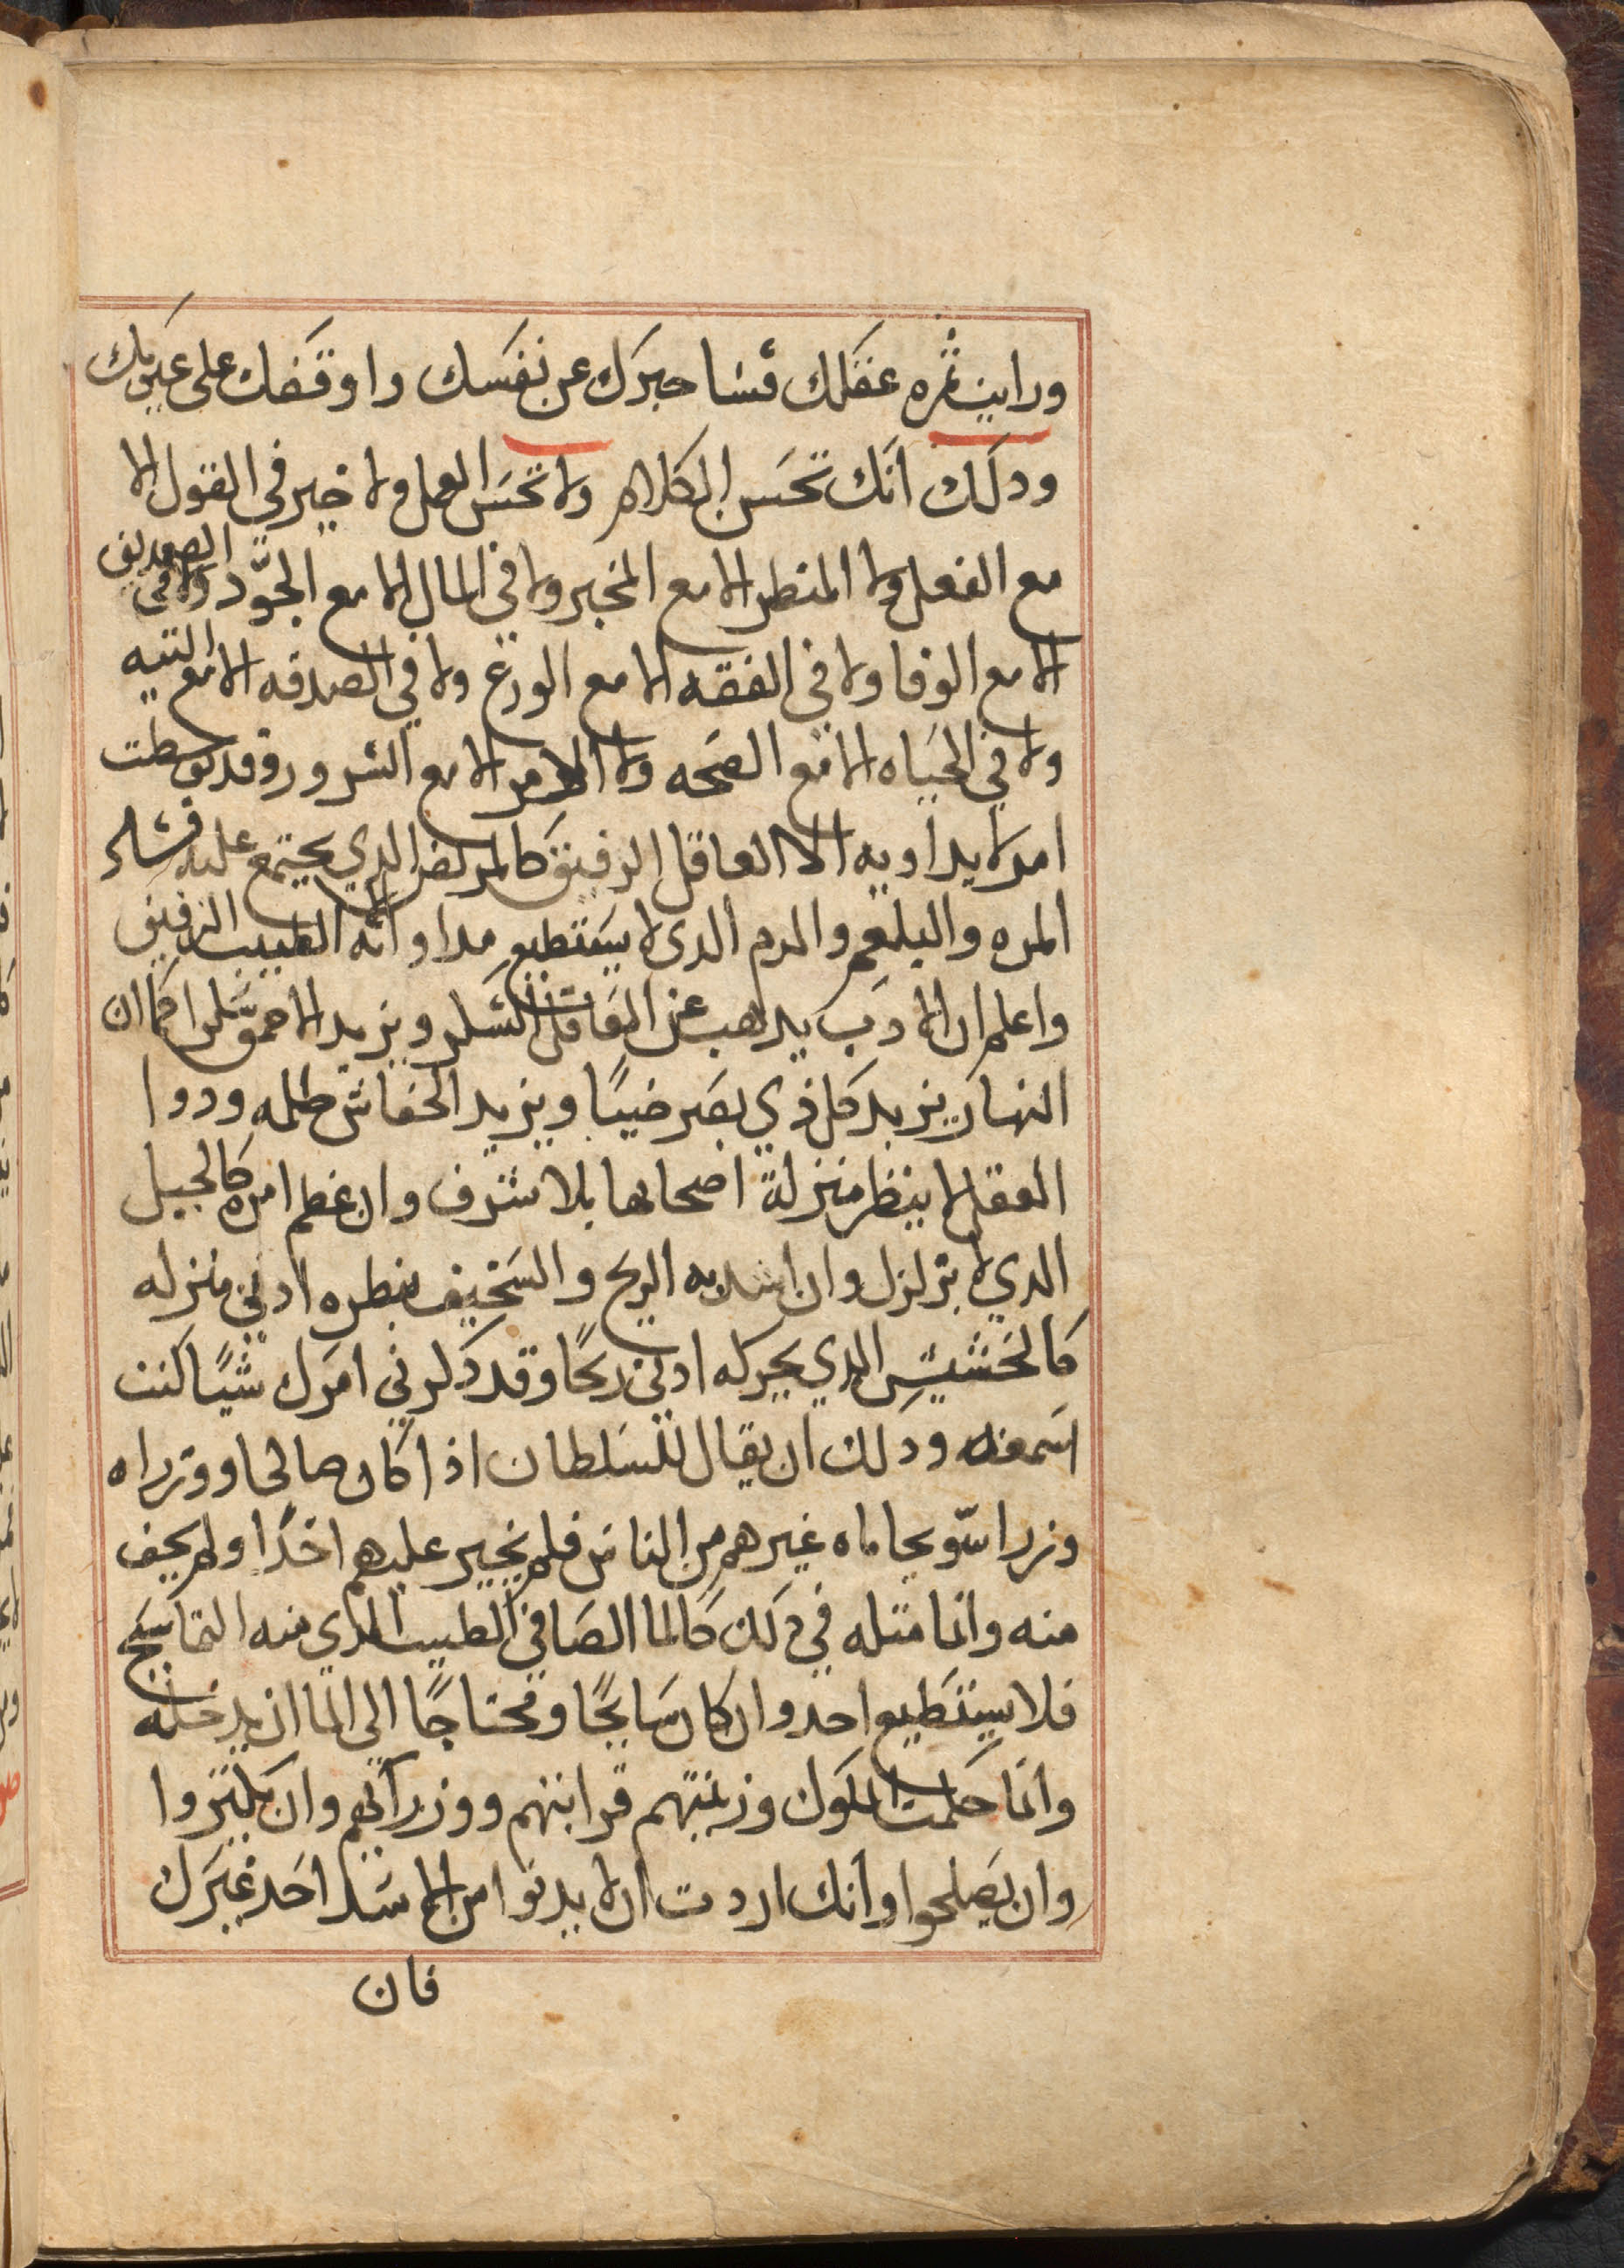 ورايت ثمره عقلك فسا خبرك عن نفسك واوقفك على عيوبك
ودلك انك تحسن الكلام ولا تحسن العمل ولا خير في القول الا
مع الفعل ولا المنظر الا مع المخبر ولا في المال الا مع الجود ولا في الصديق
الا مع الوفا ولا في الفقه الا مع الورع ولا في الصدقه الا مع النيه
ولا في الحياه الا مع الصحه ولا الامر الا مع السرور وقد
امر لا يداويه الا العاقل الرفيق كالمريض الدي يجتمع عليه
المره والبلغم والدم الدى لا يستطيع مداواته الطبيب الرفيق
واعلم ان الادب يدهب عن العاقل السكر ويزيد الاحمق سكرا كما ان
النهار يزيد كل ذي بصر ضيا ويزيد الخفاش ظلمه ودوا
العقل لا ينظر منزلة اصحابها بلا شرف وان عظم امره كالجبل
الدي لا يتزلزل وان اشتد به الريح والسخيف ينظره ادني منزله
كالحشيش الدي يحركه ادني ريحا وقد ذكرني امرك شيا كنت
اسمعه ودلك ان يقال للسلطان اذا كان صالحا ووزراه
وزرا سو يحاماه غيرهم من الناس فلم يجير عليهم احدا ولم يخف
منه وانما مثله في دلك كالما الصافي الطيب الدي فيه التماسيح
فلا يستطيع احد وان كان سابحا ومحتاجا الى الما ان يدخله
وانما حكمت الملوك وزينتهم قرابتهم ووزرآئهم وان يكثروا
وان يصلحوا وانك اردت ان لا يدنوا من الاسد احد غيرك
فان